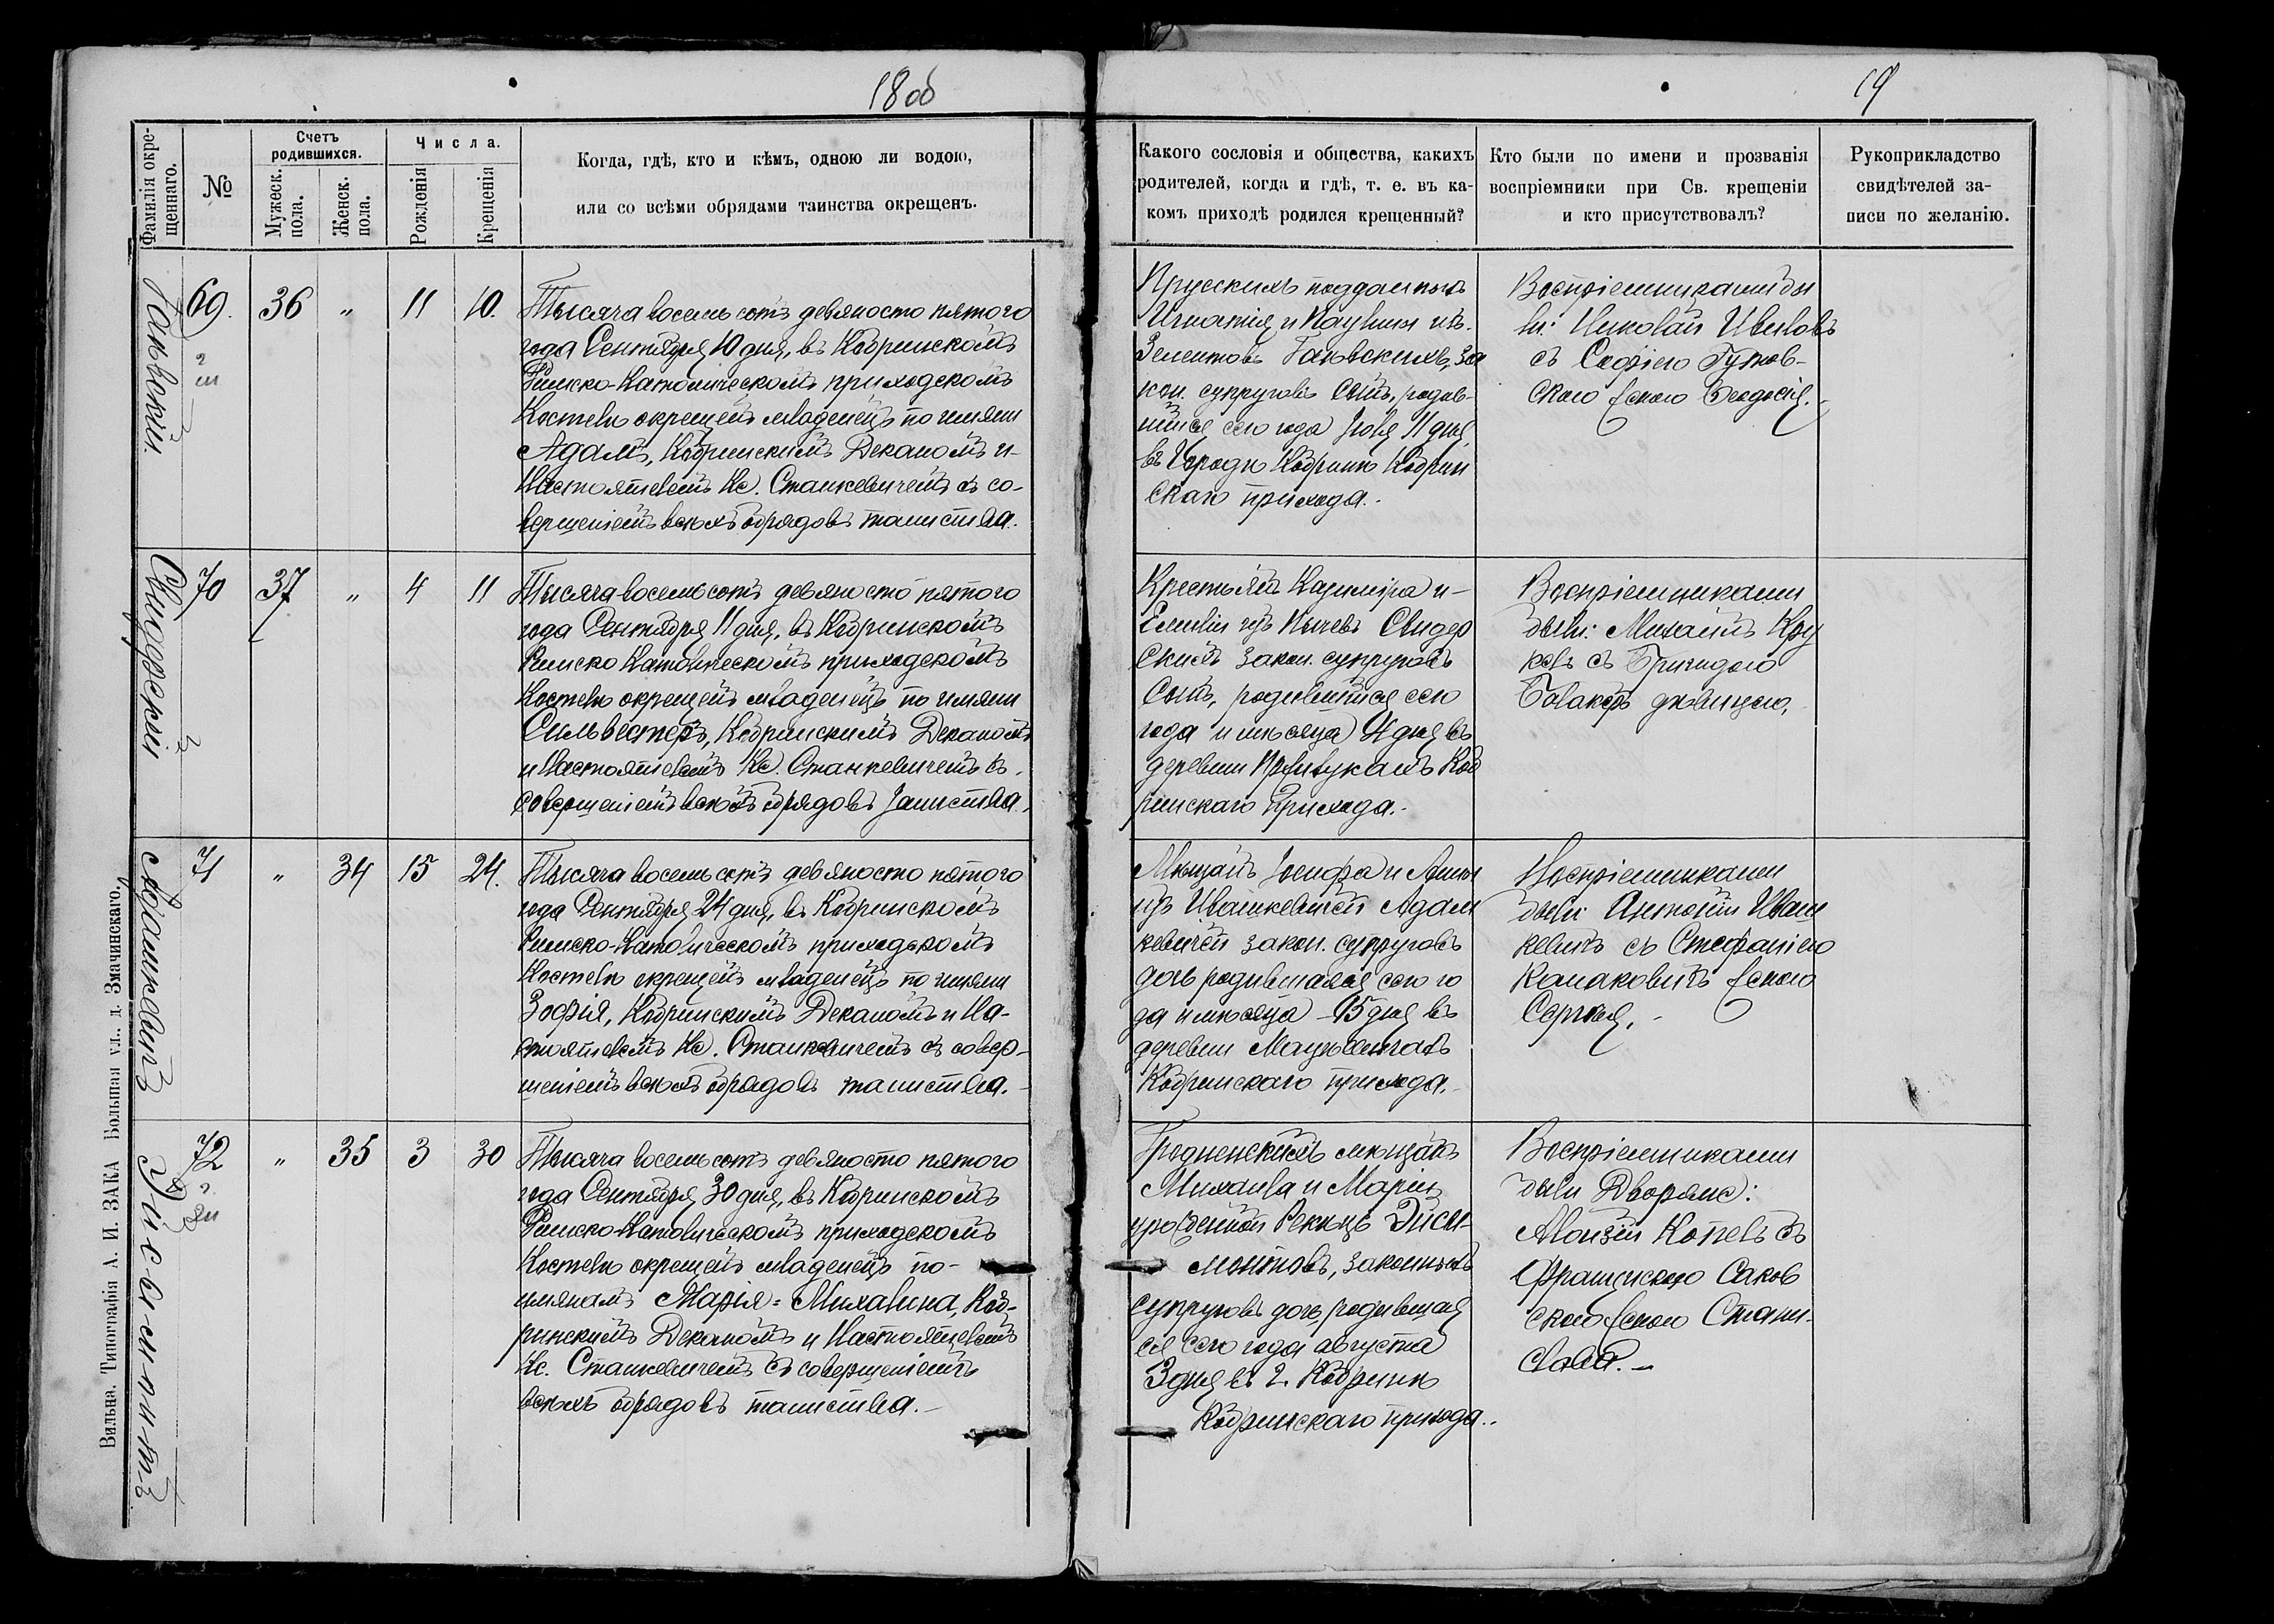 18 об
19
Фамилія окре-
щеннаго.
№
Счетъ
родившихся.
Мужеск.
пола.
Женск.
пола.
Числа.
Рожденія
Крещенія
Когда, гдѣ, кто и кѣмъ, одною ли водою,
или со всѣми обрядами таинства окрещенъ.
Какого сословія и общества, какихъ
родителей, когда и гдѣ, т. е. въ ка-
комъ приходѣ родился крещенный?
Кто были по имени и прозванія
воспріемники при Св. крещеніи
и кто присутствовалъ?
Рукоприкладство
свидѣтелей за-
писи по желанію.
69. 36 " 11 10.
Тысяча восемь сотъ девяносто пятого
года Сентября 10 дня, въ Кобринскомъ
Римско-Католическомъ приходскомъ
Костелѣ окрещенъ младенецъ по имяни
Адамъ, Кобринскимъ Деканомъ и
Настоятелемъ Кс. Станкевичемъ съ со-
вершеніемъ всѣхъ обрядовъ таинства.
Прусскихъ подданныхъ
Игнатія и Паулины изъ
закон. супруговъ Сынъ, родив-
шійся сего года 11 дня
въ Городѣ Кобринѣ Кобрин
скаго прихода.
Воспріемниками бы
ли: Николай
съ Софіею Гутов-
скою женою Ѳеодосія.
Свидерскій
70 37 " 4 11
Тысяча восемь сотъ девяносто пятого
года Сентября 11 дня, въ Кобринскомъ
Римско Католическомъ приходскомъ
Костелѣ окрещенъ младенецъ по имяни
Сильвестеръ, Кобринскимъ Деканомъ
и Настоятелемъ Кс. Станкевичемъ съ
совершеніемъ всѣхъ обрядовъ таинства.
Крестьянъ Казиміра и
Емиліи изъ Свидер
скихъ закон. супруговъ
Сынъ, родившійся сего
года и мѣсяца 4 дня въ
деревни Коб
ринскаго прихода.
Воспріемниками
были: Михаилъ Кру
съ Бригидою
дѣвицею.
Адашкевичъ
71 " 34 15 24.
Тысяча восемь сотъ девяносто пятого
года Сентября 24 дня, въ Кобринскомъ
Римско-Католическомъ приходскомъ
Костелѣ окрещенъ младенецъ по имяни
Зофія, Кобринскимъ Деканомъ и На-
стоятелемъ Кс. Станкевичемъ съ совер-
шеніемъ всѣхъ обрядовъ таинства.
Мѣщанъ Іосифа и Анны
изъ Ивашкевичей Адаш
кевичей закон. супруговъ
дочь родившаяся сего го
да и мѣсяца 15 дня въ
деревни
Кобринскаго прихода.
Воспріемниками
были: Антоній Иваш
кевичъ съ Стефаніею
женою
Сергѣя.
Эйсымонтъ
72 " 35 3 30
Тысяча восемь сотъ девяносто пятого
года Сентября 30 дня, въ Кобринскомъ
Римско-Католическомъ приходскомъ
Костелѣ окрещенъ младенецъ по-
имянамъ Марія=Михалина, Коб-
ринскимъ Деканомъ и Настоятелемъ
Кс. Станкевичемъ съ совершеніемъ
всѣхъ обрядовъ таинства.
Гродненскихъ мѣщанъ
Михаила и Маріи
урожденной Эйсы-
монтовъ, законныхъ
супруговъ дочь, родившая
ся сего года августа
3 дня въ г. Кобринѣ
Кобринскаго прихода.
Воспріемниками
были Дворяне:
Алоизій Копецъ съ
Францискою Саков
скою женою Стани-
слава.
Вильна. Типографія А. И. ЗАКА Большая ул., д. Змачинскаго.